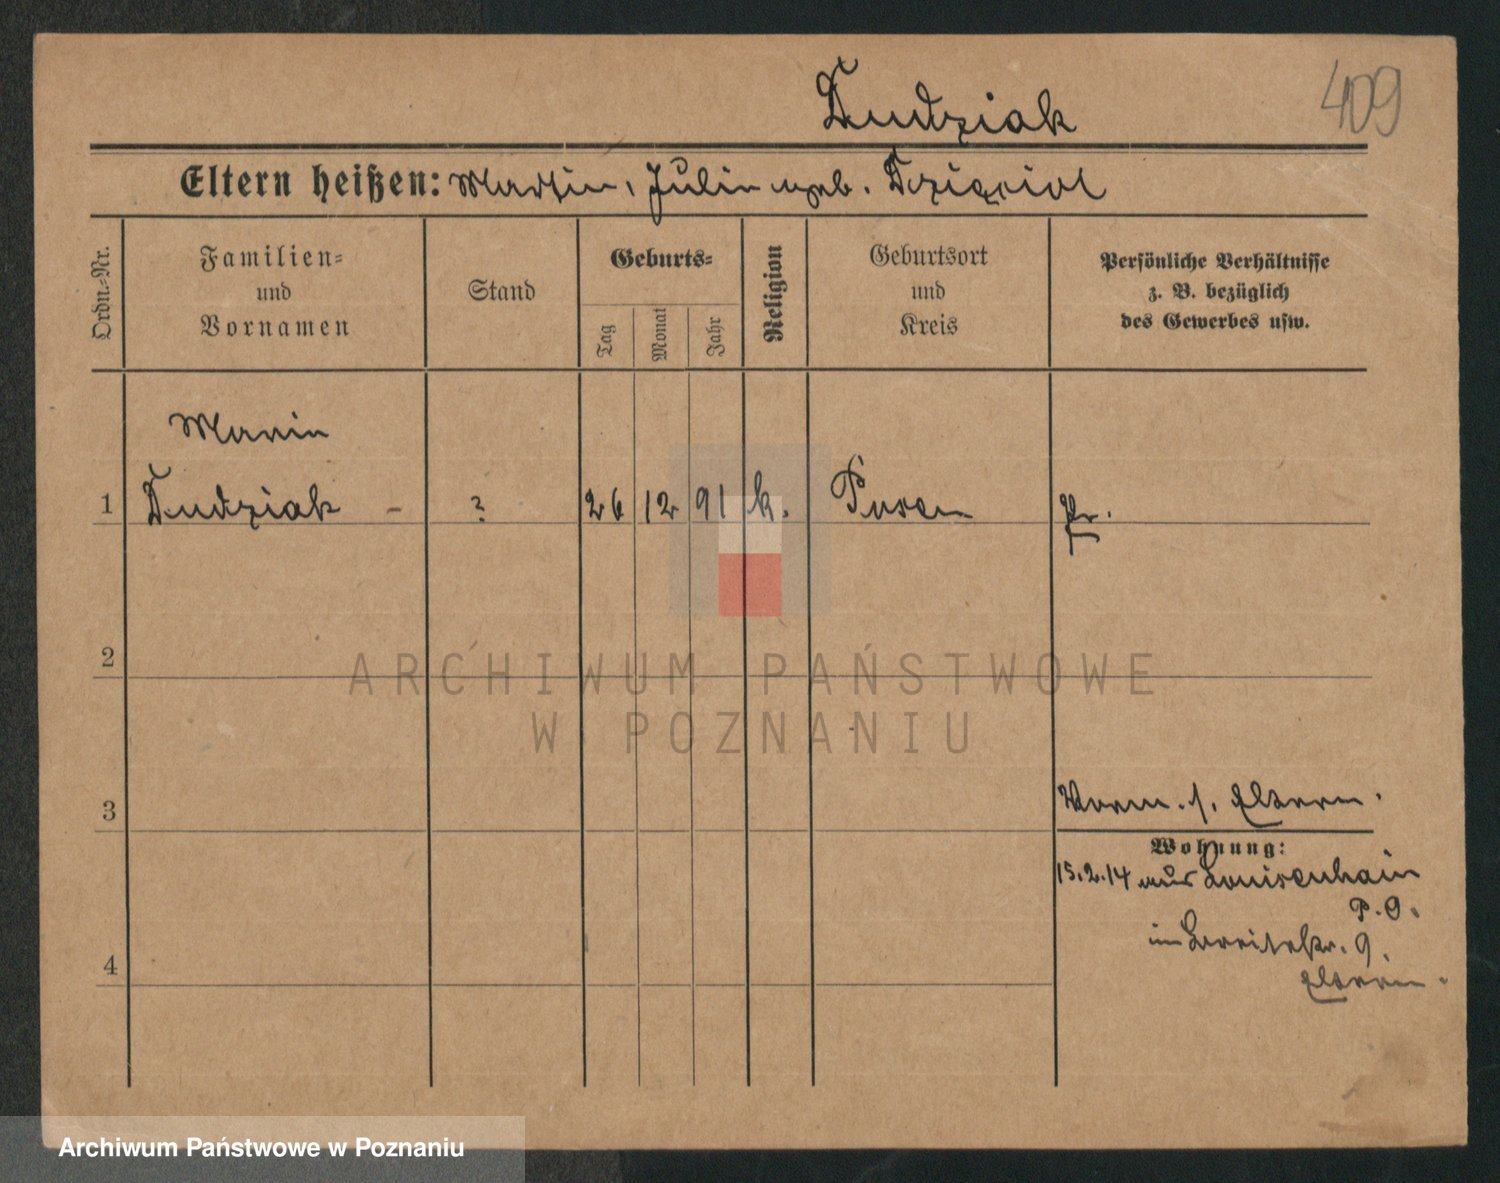 Dudziak
409
Eltern heißen: Martin, Julie geb.
Ordn.-Nr.
Familien-
und
Vornamen
Stand
Geburts-
Tag
Monat
Jahr
Religion
Geburtsort
und
Kreis
Persönliche Verhältnisse
z. B. bezüglich
des Gewerbes usw.
Marie
1 Dudziak - ? 26 12 91 k. Posen Pr.
2
ARCHIWUM PAŃSTWOWE
W POZNANIU
3 Vorm. s. Eltern.
Wohnung:
15.2.14 aus Louisenhain
P.O.
4
Eltern.
Archiwum Państwowe w Poznaniu